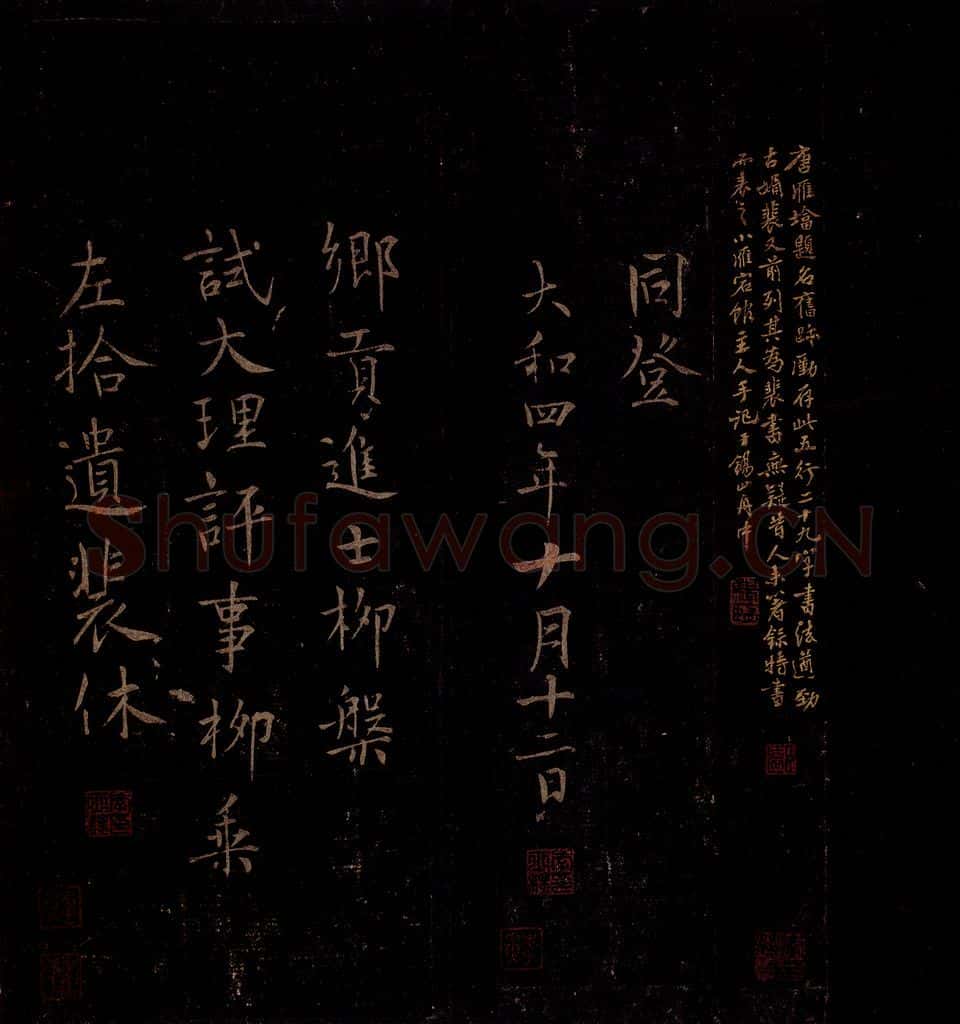 唐雁塔題名舊跡勵存此五行二十九字書法遒勁
古媚裴又前列其為裴書無疑昔人未著錄特書
而表之小雁宕館主人手記于錫山舟中
同登
大和四年十月十二日
鄉貢進士柳槃
試大理評事柳乘
左拾遺裴休
Shufawang.CN